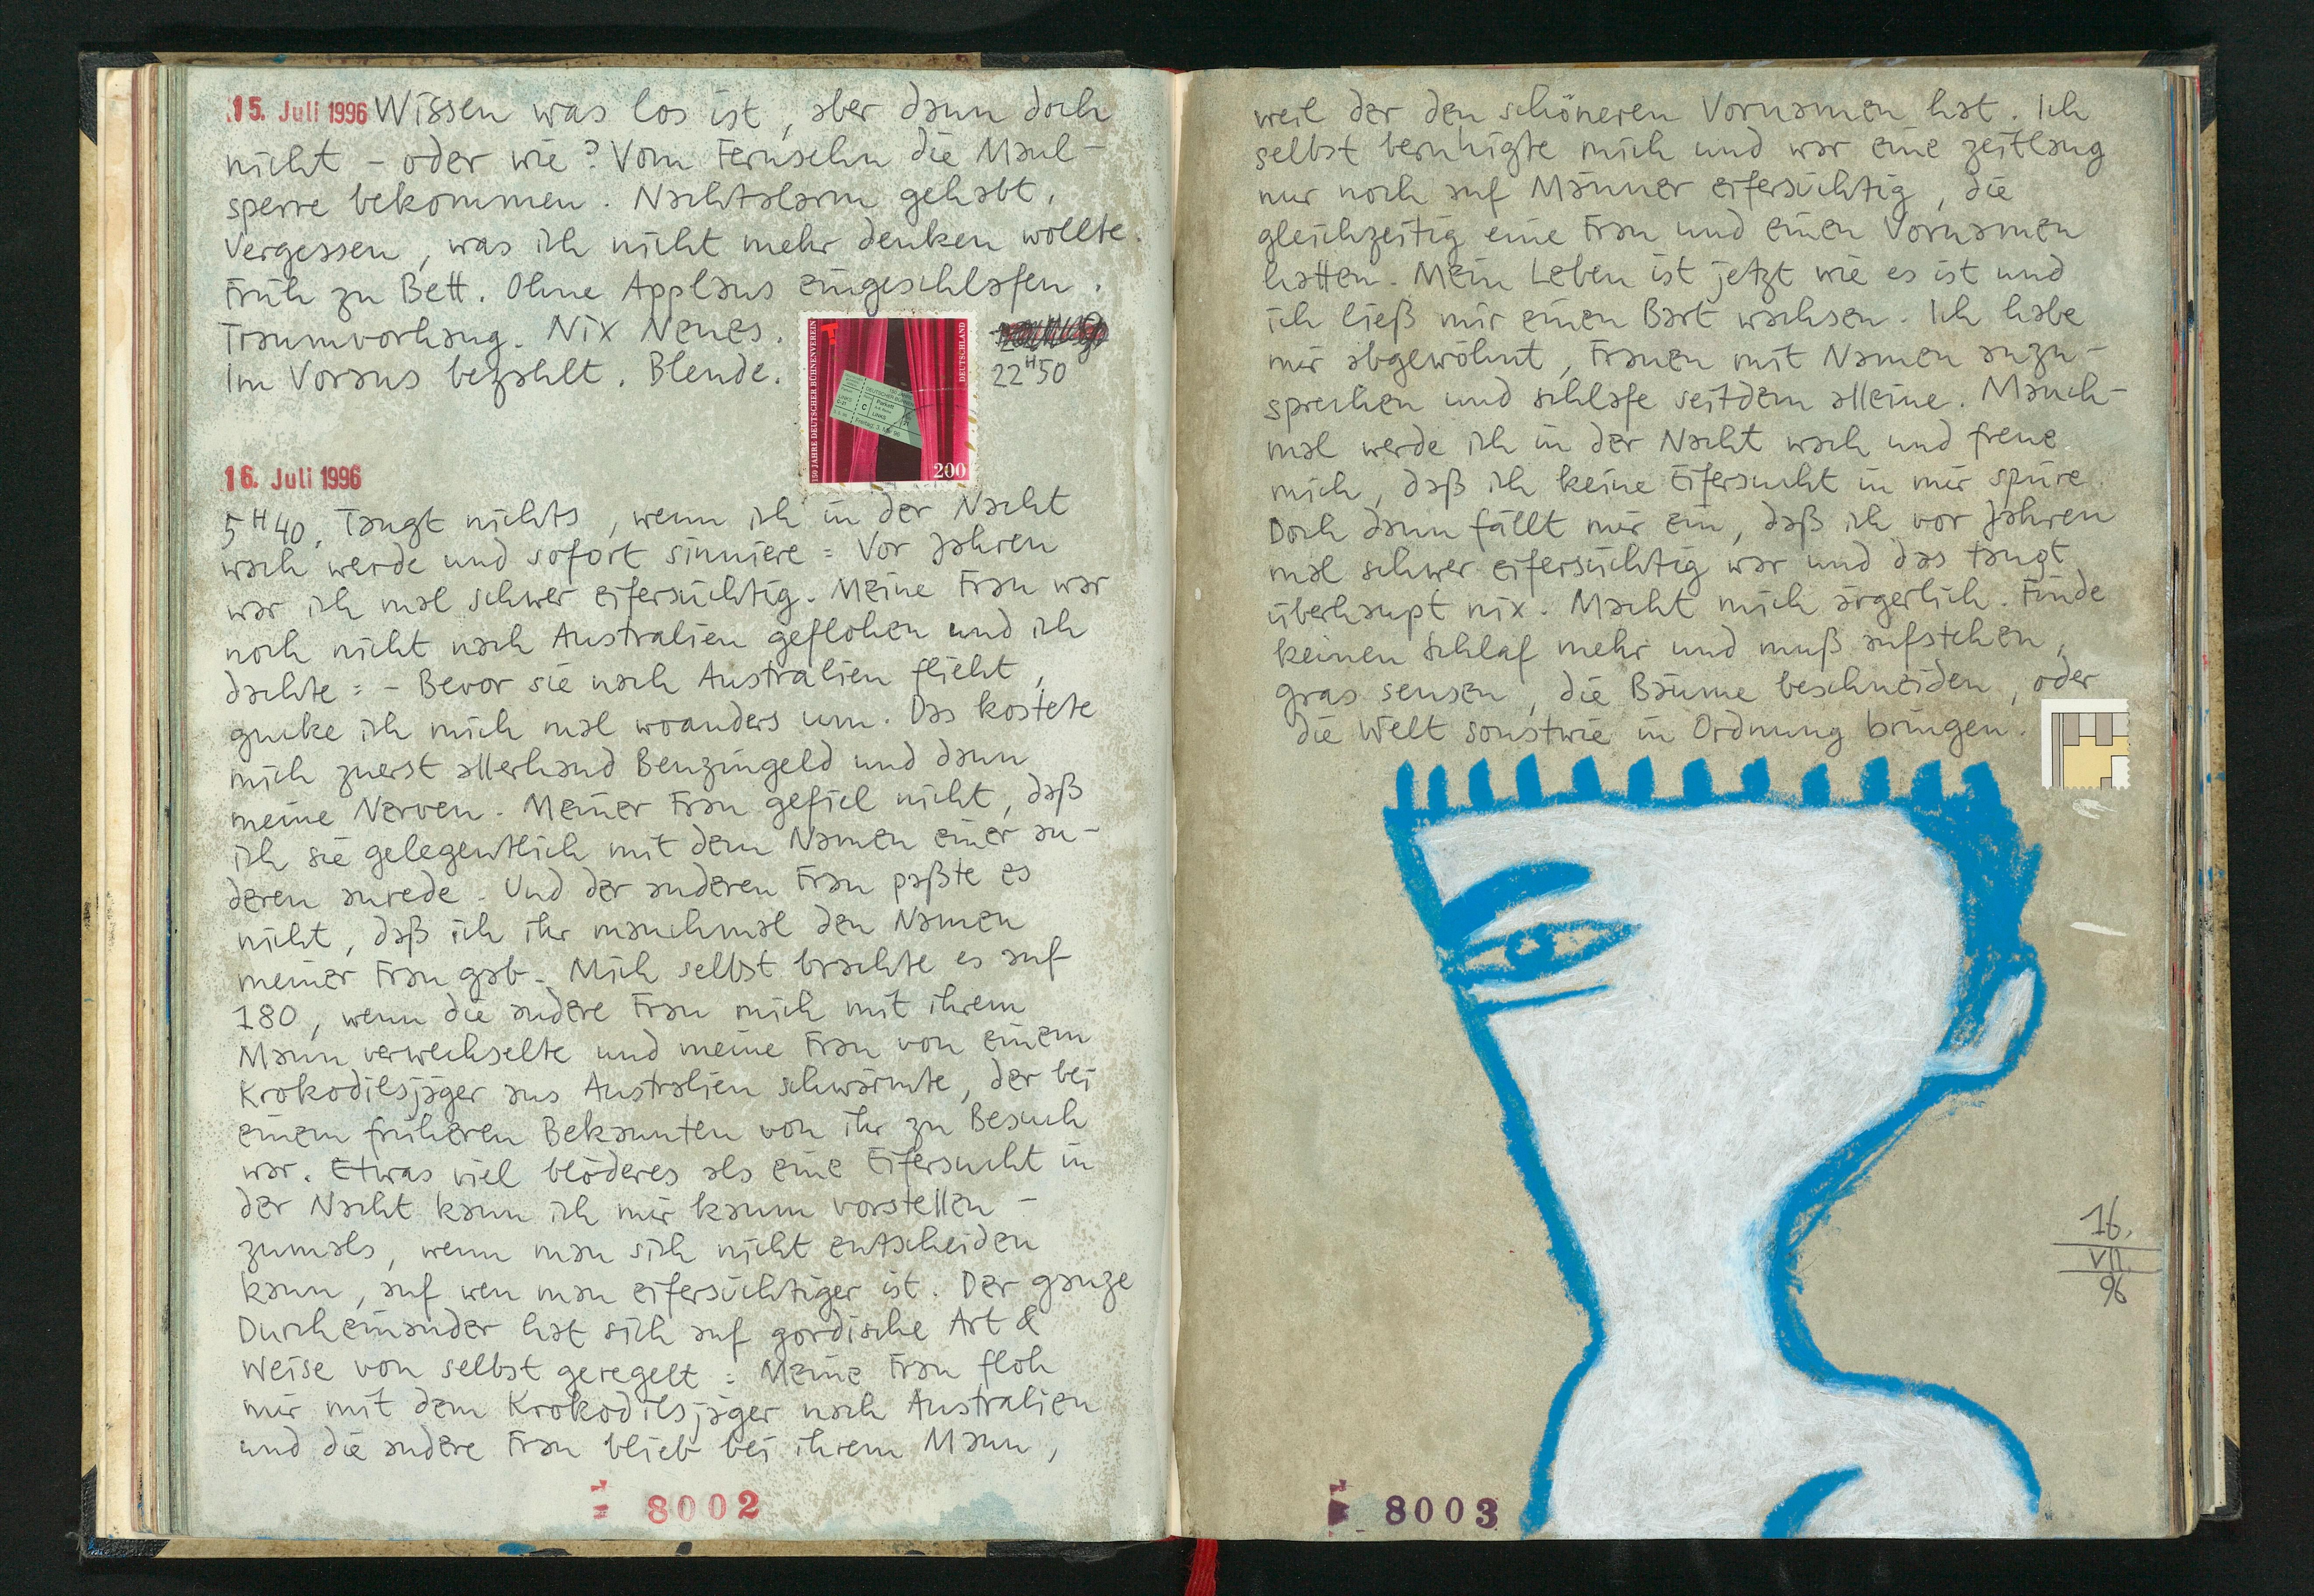 15. Juli 1996 Wissen was los ist, aber dann doch
nicht – oder wie? Vom Fernsehn die Maul-
sperre bekommen. Nachtalarm gehabt.
Vergessen, was ich nicht mehr denken wollte.
Früh zu Bett. Ohne Applaus eingeschlafen.
Traumvorhang. Nix Neues.
Im Voraus bezahlt. Blende.
22H50
150 JAHRE DEUTSCHER BÜHNENVEREIN
DEUTSCHLAND
200
LINKS
C
Parkett
LINKS
16. Juli 1996
5H40. Taugt nichts, wenn ich in der Nacht
wach werde und sofort sinniere: Vor Jahren
war ich mal schwer eifersüchtig. Meine Frau war
noch nicht nach Australien geflohen und ich
dachte: – Bevor sie nach Australien flieht,
gucke ich mich mal woanders um. Das kostete
mich zuerst allerhand Benzingeld und dann
meine Nerven. Meiner Frau gefiel nicht, daß
ich sie gelegentlich mit dem Namen einer an-
deren anrede. Und der anderen Frau paßte es
nicht, daß ich ihr manchmal den Namen
meiner Frau gab. Mich selbst brachte es auf
180, wenn die andere Frau mich mit ihrem
Mann verwechselte und meine Frau von einem
Krokodilsjäger aus Australien schwärmte, der bei
einem früheren Bekannten von ihr zu Besuch
war. Etwas viel blöderes als eine Eifersucht in
der Nacht kann ich mir kaum vorstellen –
zumals, wenn man sich nicht entscheiden
kann, auf wen man eifersüchtiger ist. Der ganze
Durcheinander hat sich auf gordische Art &
Weise von selbst geregelt: Meine Frau floh
mir mit dem Krokodilsjäger nach Australien
und die andere Frau blieb bei ihrem Mann,
8002
weil der den schöneren Vornamen hat. Ich
selbst beruhigte mich und war eine zeitlang
nur noch auf Männer eifersüchtig, die
gleichzeitig eine Frau und einen Vornamen
hatten. Mein Leben ist jetzt wie es ist und
ich ließ mir einen Bart wachsen. Ich habe
mir abgewöhnt, Frauen mit Namen anzu-
sprechen und schlafe seitdem alleine. Manch-
mal werde ich in der Nacht wach und freue
mich, daß ich keine Eifersucht in mir spüre.
Doch dann fällt mir ein, daß ich vor Jahren
mal schwer eifersüchtig war und das taugt
überhaupt nix. Macht mich ärgerlich. Finde
keinen Schlaf mehr und muß aufstehen,
gras sensen, die Bäume beschneiden, oder
die Welt sonstwie in Ordnung bringen.
16.
VII.
96
8003